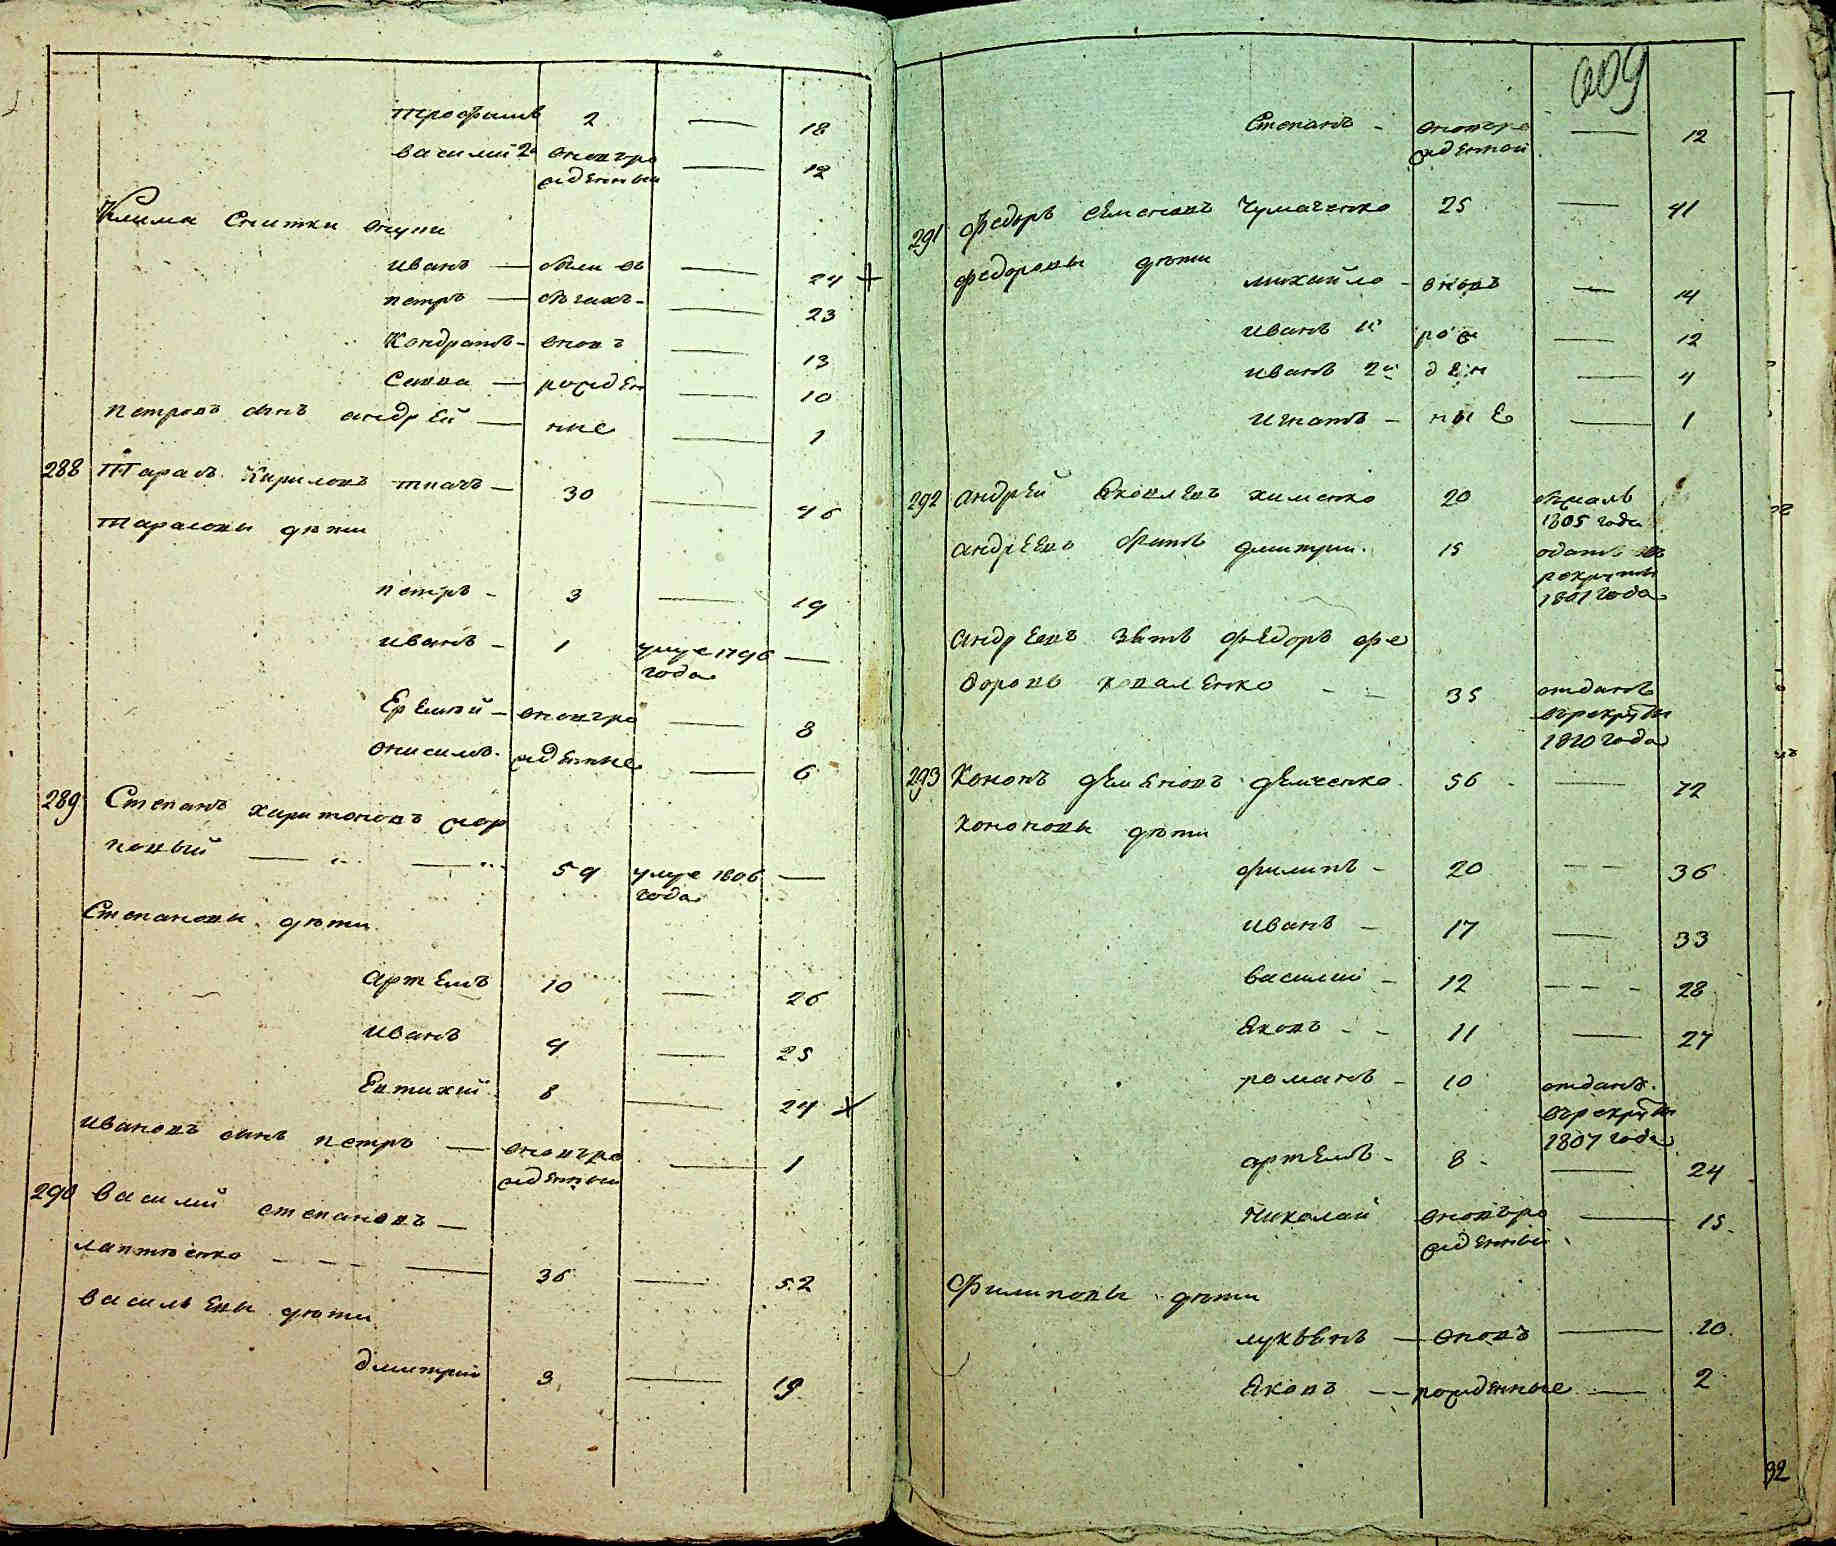 Трофимъ 2 — 18
василий 2й вновъро
жденный — 12
Клима Снитки внуки
иванъ — были въ — 24
петръ — бегахъ — 23
Кондратъ — вновъ — 13
Савва — рожден — 10
петровъ сынъ андрей — ные — 1
288 Тарасъ Кириловъ ткачъ — 30 — 46
тарасовы дѣти
петръ — 3 — 19
иванъ — 1 умре 1796 —
года
Еремѣй — вновъро — 8
онисимъ — жденные — 6
289 Степанъ харитоновъ жор
новый — 59 умре 1806 —
года
Степановы дѣти
артемъ 10 — 26
иванъ 9 — 25
Евтихий 8 — 24
ивановъ сынъ петръ — вновъро — 1
жденный
290 василий степановъ —
лаптѣенко — 36 — 52
васильевы дѣти
дмитрий 3 — 19
609
Степанъ — вновъро — 12
жденной
291 Федоръ семеновъ Чумаченко 25 — 41
федоровы дѣти
михайло — вновъ — 14
иванъ 1й рож — 12
иванъ 2й ден — 4
игнатъ — ные — 1
292 андрей Яковлевъ хименко 20 бежалъ
1805 года
андреевъ братъ дмитрий 15 одатъ въ
рекруты
1801 года
андреевъ зять федоръ фе
доровъ коваленко — 35 отданъ
въ рекруты
1810 года
293 Кононъ демяновъ демченко 56 — 72
кононовы дѣти
филипъ — 20 — 36
иванъ — 17 — 33
василий — 12 — 28
Яковъ — 11 — 27
романъ — 10 отданъ
въ рекруты
1807 года
артемъ — 8 — 24
николай вновъро — 15
жденный
Филиповы дѣти
лукьянъ — вновъ — 10
Яковъ — рожденные — 2
92